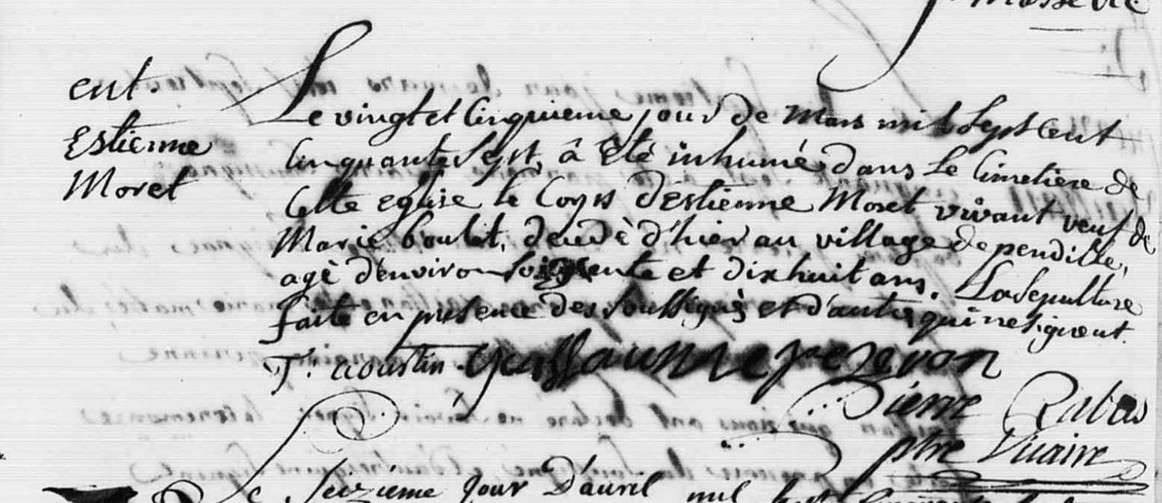 ent.
Estienne
Moret
Le vingt et Cinquieme jour de Mars mil Sept cent
Cinquante Sept, â êté inhumé dans Le Cimetiere de
Cette eglise le Corps d'Estienne Moret vivant veuf de
Marie boulit, decedè d'hier au village de pendille,
agè d'environ soixente et dix huit ans. La Sepulture
faite en presence des soussignès et d'autres qui ne signent.
T: coustin Guillaume perevon
Pierre Rabas
ptre Vicaire
Seizieme jour D'auril mil Sept